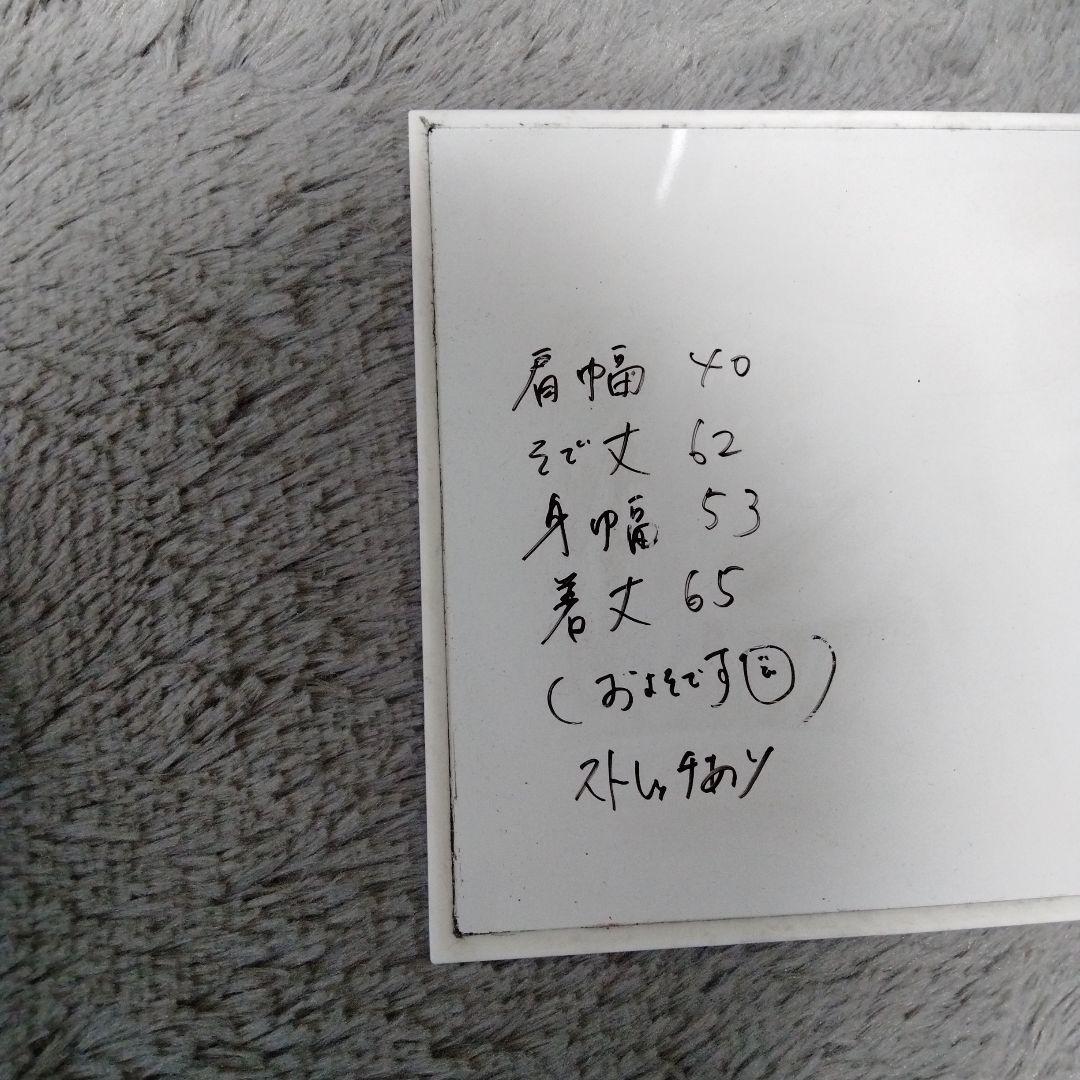 肩幅 40
そで丈 62
身幅 53
着丈 65
(およそです)
ストレッチあり